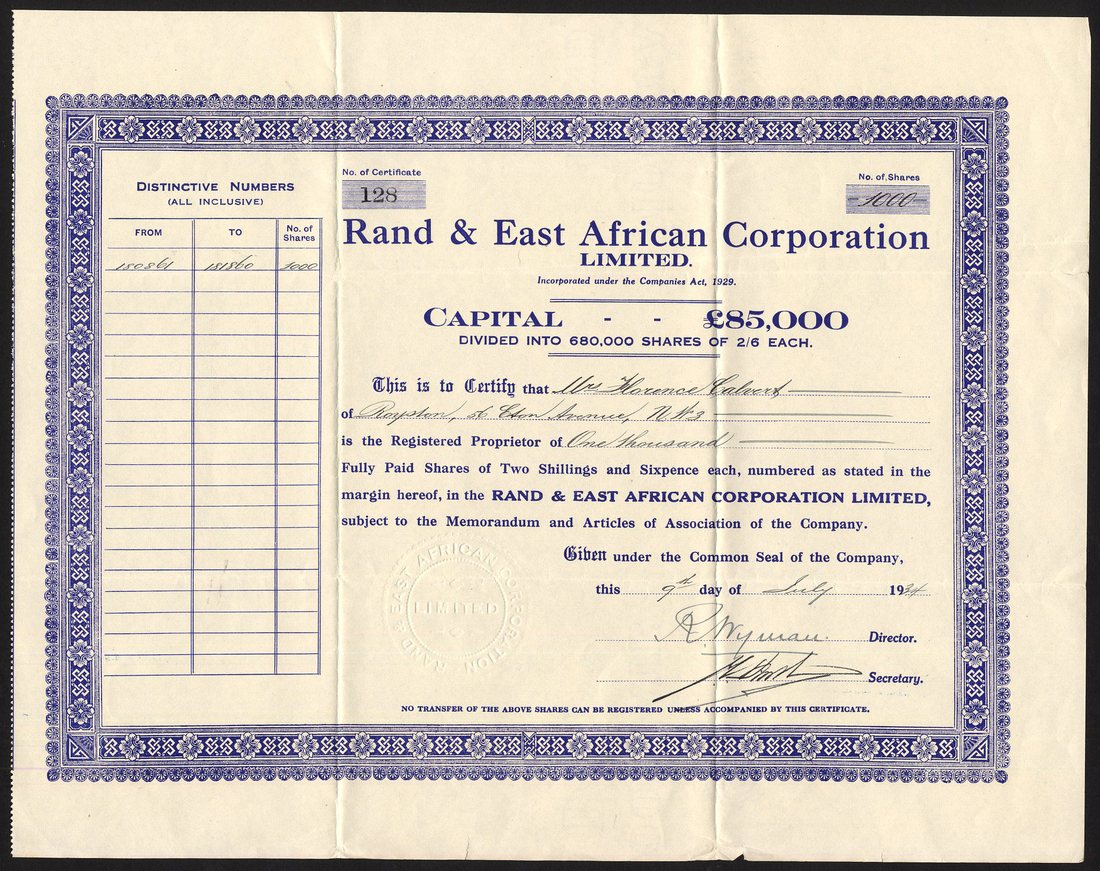 DISTINCTIVE NUMBERS
(ALL INCLUSIVE)
FROM TO No. of Shares
180861 181860 1000
No. of Certificate
128
No. of Shares
1000
Rand & East African Corporation
LIMITED.
Incorporated under the Companies Act, 1929.
CAPITAL - - £85,000
DIVIDED INTO 680,000 SHARES OF 2/6 EACH.
This is to Certify that Mrs Florence Calvert
of Royston, Eton Avenue, N W 3
is the Registered Proprietor of One thousand
Fully Paid Shares of Two Shillings and Sixpence each, numbered as stated in the
margin hereof, in the RAND & EAST AFRICAN CORPORATION LIMITED,
subject to the Memorandum and Articles of Association of the Company.
Given under the Common Seal of the Company,
this 9th day of July 1934
R. Wyman Director.
Secretary.
RAND & EAST AFRICAN CORPORATION
LIMITED
NO TRANSFER OF THE ABOVE SHARES CAN BE REGISTERED UNLESS ACCOMPANIED BY THIS CERTIFICATE.